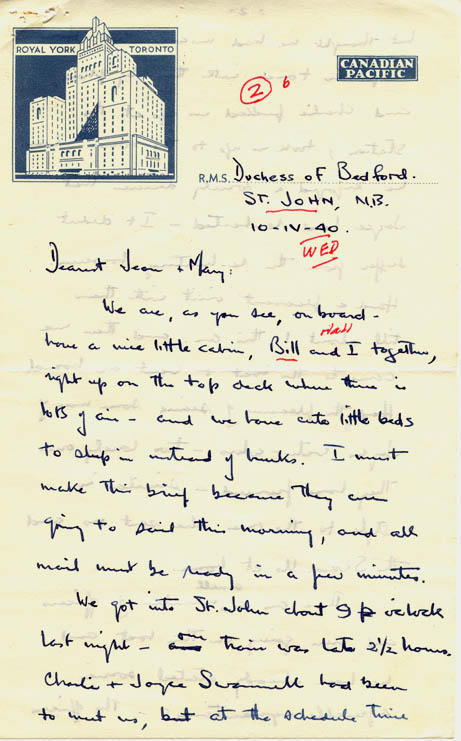 ROYAL YORK TORONTO
CANADIAN
PACIFIC
2 6
R.M.S. Duchess of Bedford.
ST. JOHN, N.B.
10-IV-40.
WED
Dearest Jean + Mary:
We are, as you see, on board -
have a nice little cabin, Bill and I together,
right up on the top deck where there is
lots of air - and we have cute little beds
to sleep in instead of bunks. I must
make this brief because they are
going to sail this morning, and all
mail must be ready in a few minutes.
We got into St. John about 9 o'clock
last night - our train was late 2½ hours.
Charlie + Joyce Swannell had been
to meet us, but at the schedule time